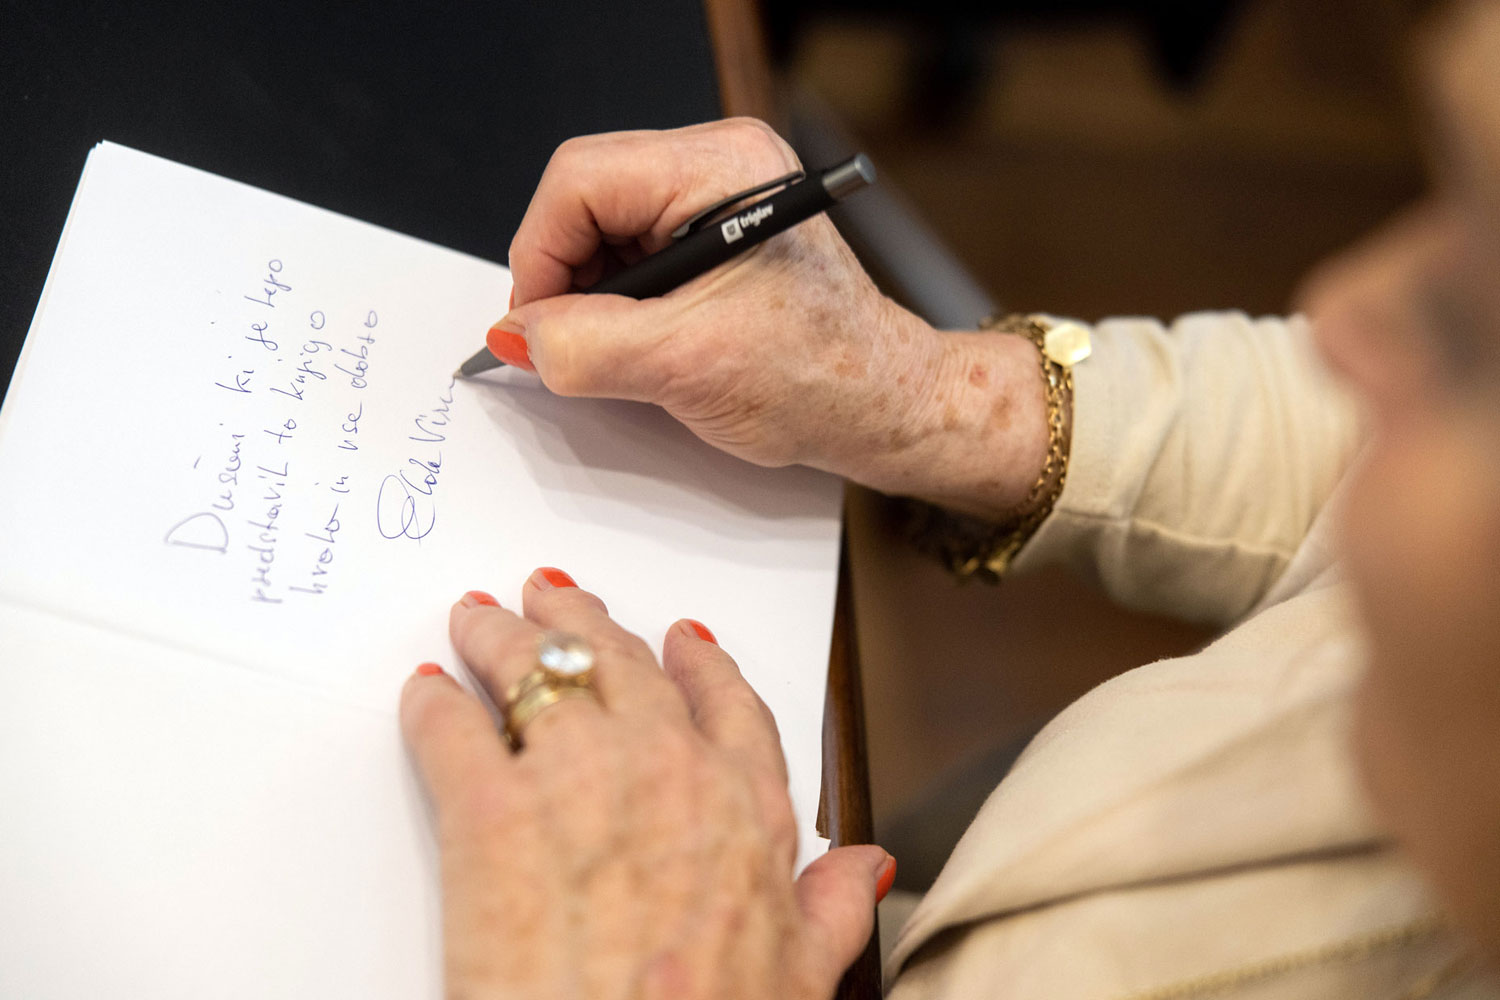 Dušami ki je lepo
predstavil to knjigo
hvala in vse dobro
triglav